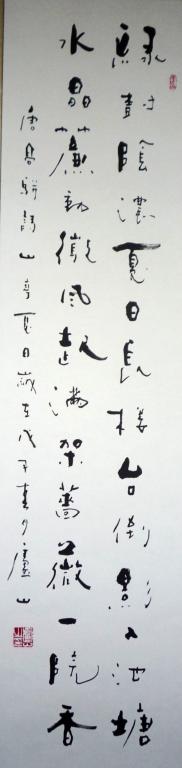 綠樹陰濃夏日長樓台倒影入池塘
水晶簾動微風起滿架薔薇一院香
唐高駢詩山亭夏日歲在戊子春月廬山